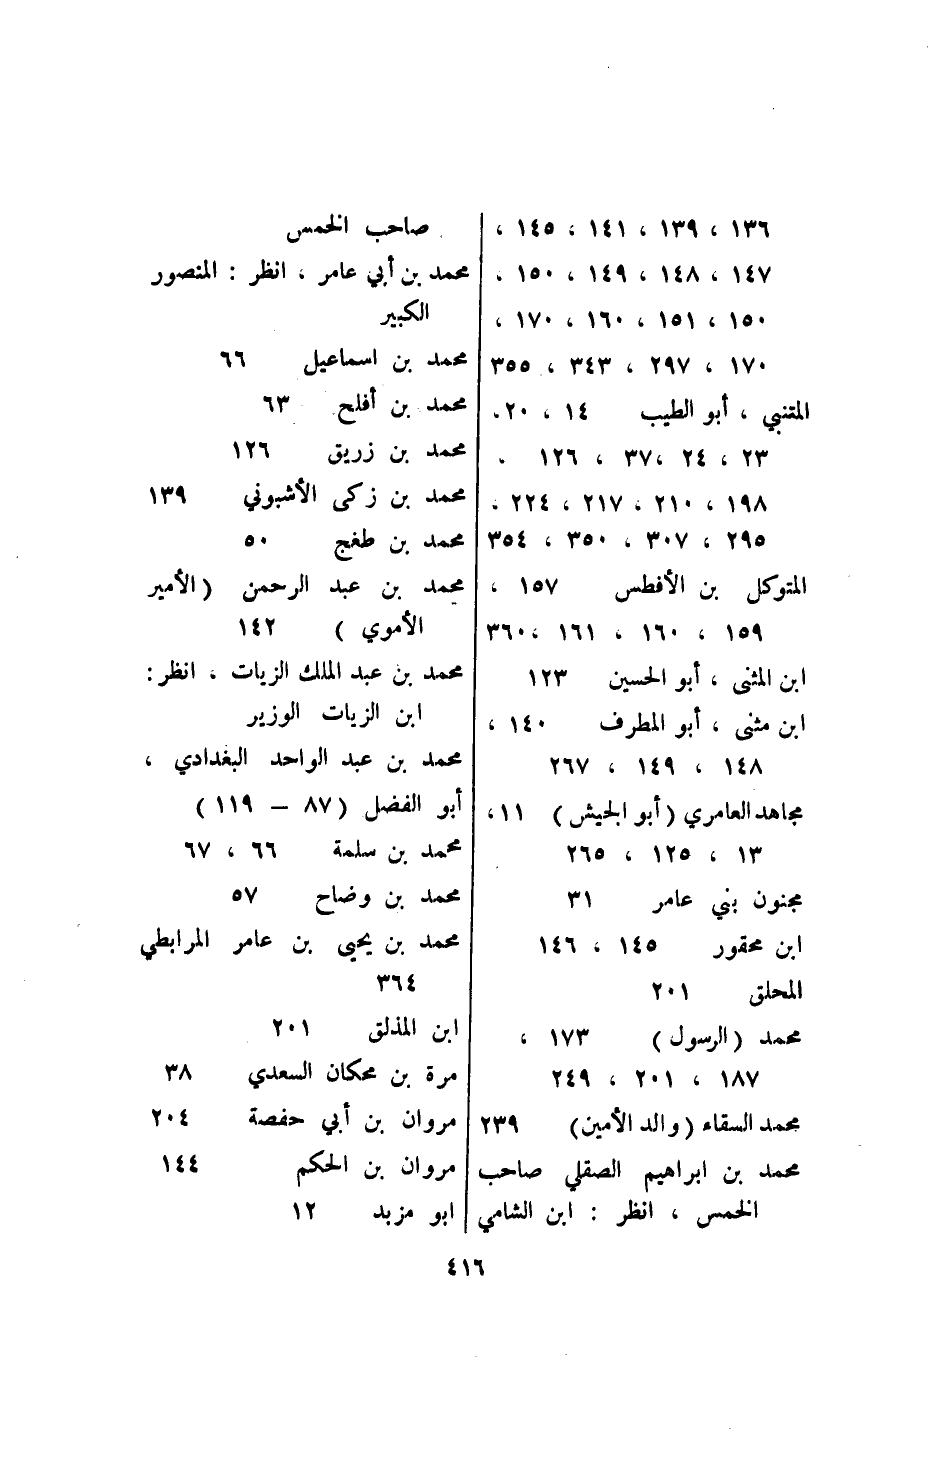 ١٣٦ ، ١٣٩ ، ١٤١ ، ١٤٥ ،
١٤٧ ، ١٤٨ ، ١٤٩ ، ١٥٠ ،
١٥٠ ، ١٥١ ، ١٦٠ ، ١٧٠ ،
١٧٠ ، ٢٩٧ ، ٣٤٣ ، ٣٥٥
المتنبي ، أبو الطيب ١٤ ، ٢٠ ،
٢٣ ، ٢٤ ، ٣٧ ، ١٢٦ ،
١٩٨ ، ٢١٠ ، ٢١٧ ، ٢٢٤ ،
٢٩٥ ، ٣٠٧ ، ٣٥٠ ، ٣٥٤
المتوكل بن الأفطس ١٥٧ ،
١٥٩ ، ١٦٠ ، ١٦١ ، ٣٦٠
ابن المثنى ، أبو الحسين ١٢٣
ابن مثنى ، أبو المطرف ١٤٠ ،
١٤٨ ، ١٤٩ ، ٢٦٧
مجاهد العامري (أبو الجيش) ١١ ،
١٣ ، ١٢٥ ، ٢٦٥
مجنون بني عامر ٣١
ابن محقور ١٤٥ ، ١٤٦
المحلق ٢٠١
محمد (الرسول) ١٧٣ ،
١٨٧ ، ٢٠١ ، ٢٤٩
محمد السقاء (والد الأمين) ٢٣٩
محمد بن ابراهيم الصقلي صاحب
الخمس ، انظر : ابن الشامي
صاحب الخمس
محمد بن أبي عامر ، انظر : المنصور
الكبير
محمد بن اسماعيل ٦٦
محمد بن أفلح ٦٣
محمد بن زريق ١٢٦
محمد بن زكى الأشبوني ١٣٩
محمد بن طغج ٥٠
محمد بن عبد الرحمن (الأمير
الأموي ) ١٤٢
محمد بن عبد الملك الزيات ، انظر :
ابن الزيات الوزير
محمد بن عبد الواحد البغدادي ،
أبو الفضل (٨٧ – ١١٩)
محمد بن سلمة ٦٦ ، ٦٧
محمد بن وضاح ٥٧
محمد بن يحيى بن عامر المرابطي
٣٦٤
ابن المذلق ٢٠١
مرة بن محكان السعدي ٣٨
مروان بن أبي حفصة ٢٠٤
مروان بن الحكم ١٤٤
ابو مزبد ١٢
٤١٦